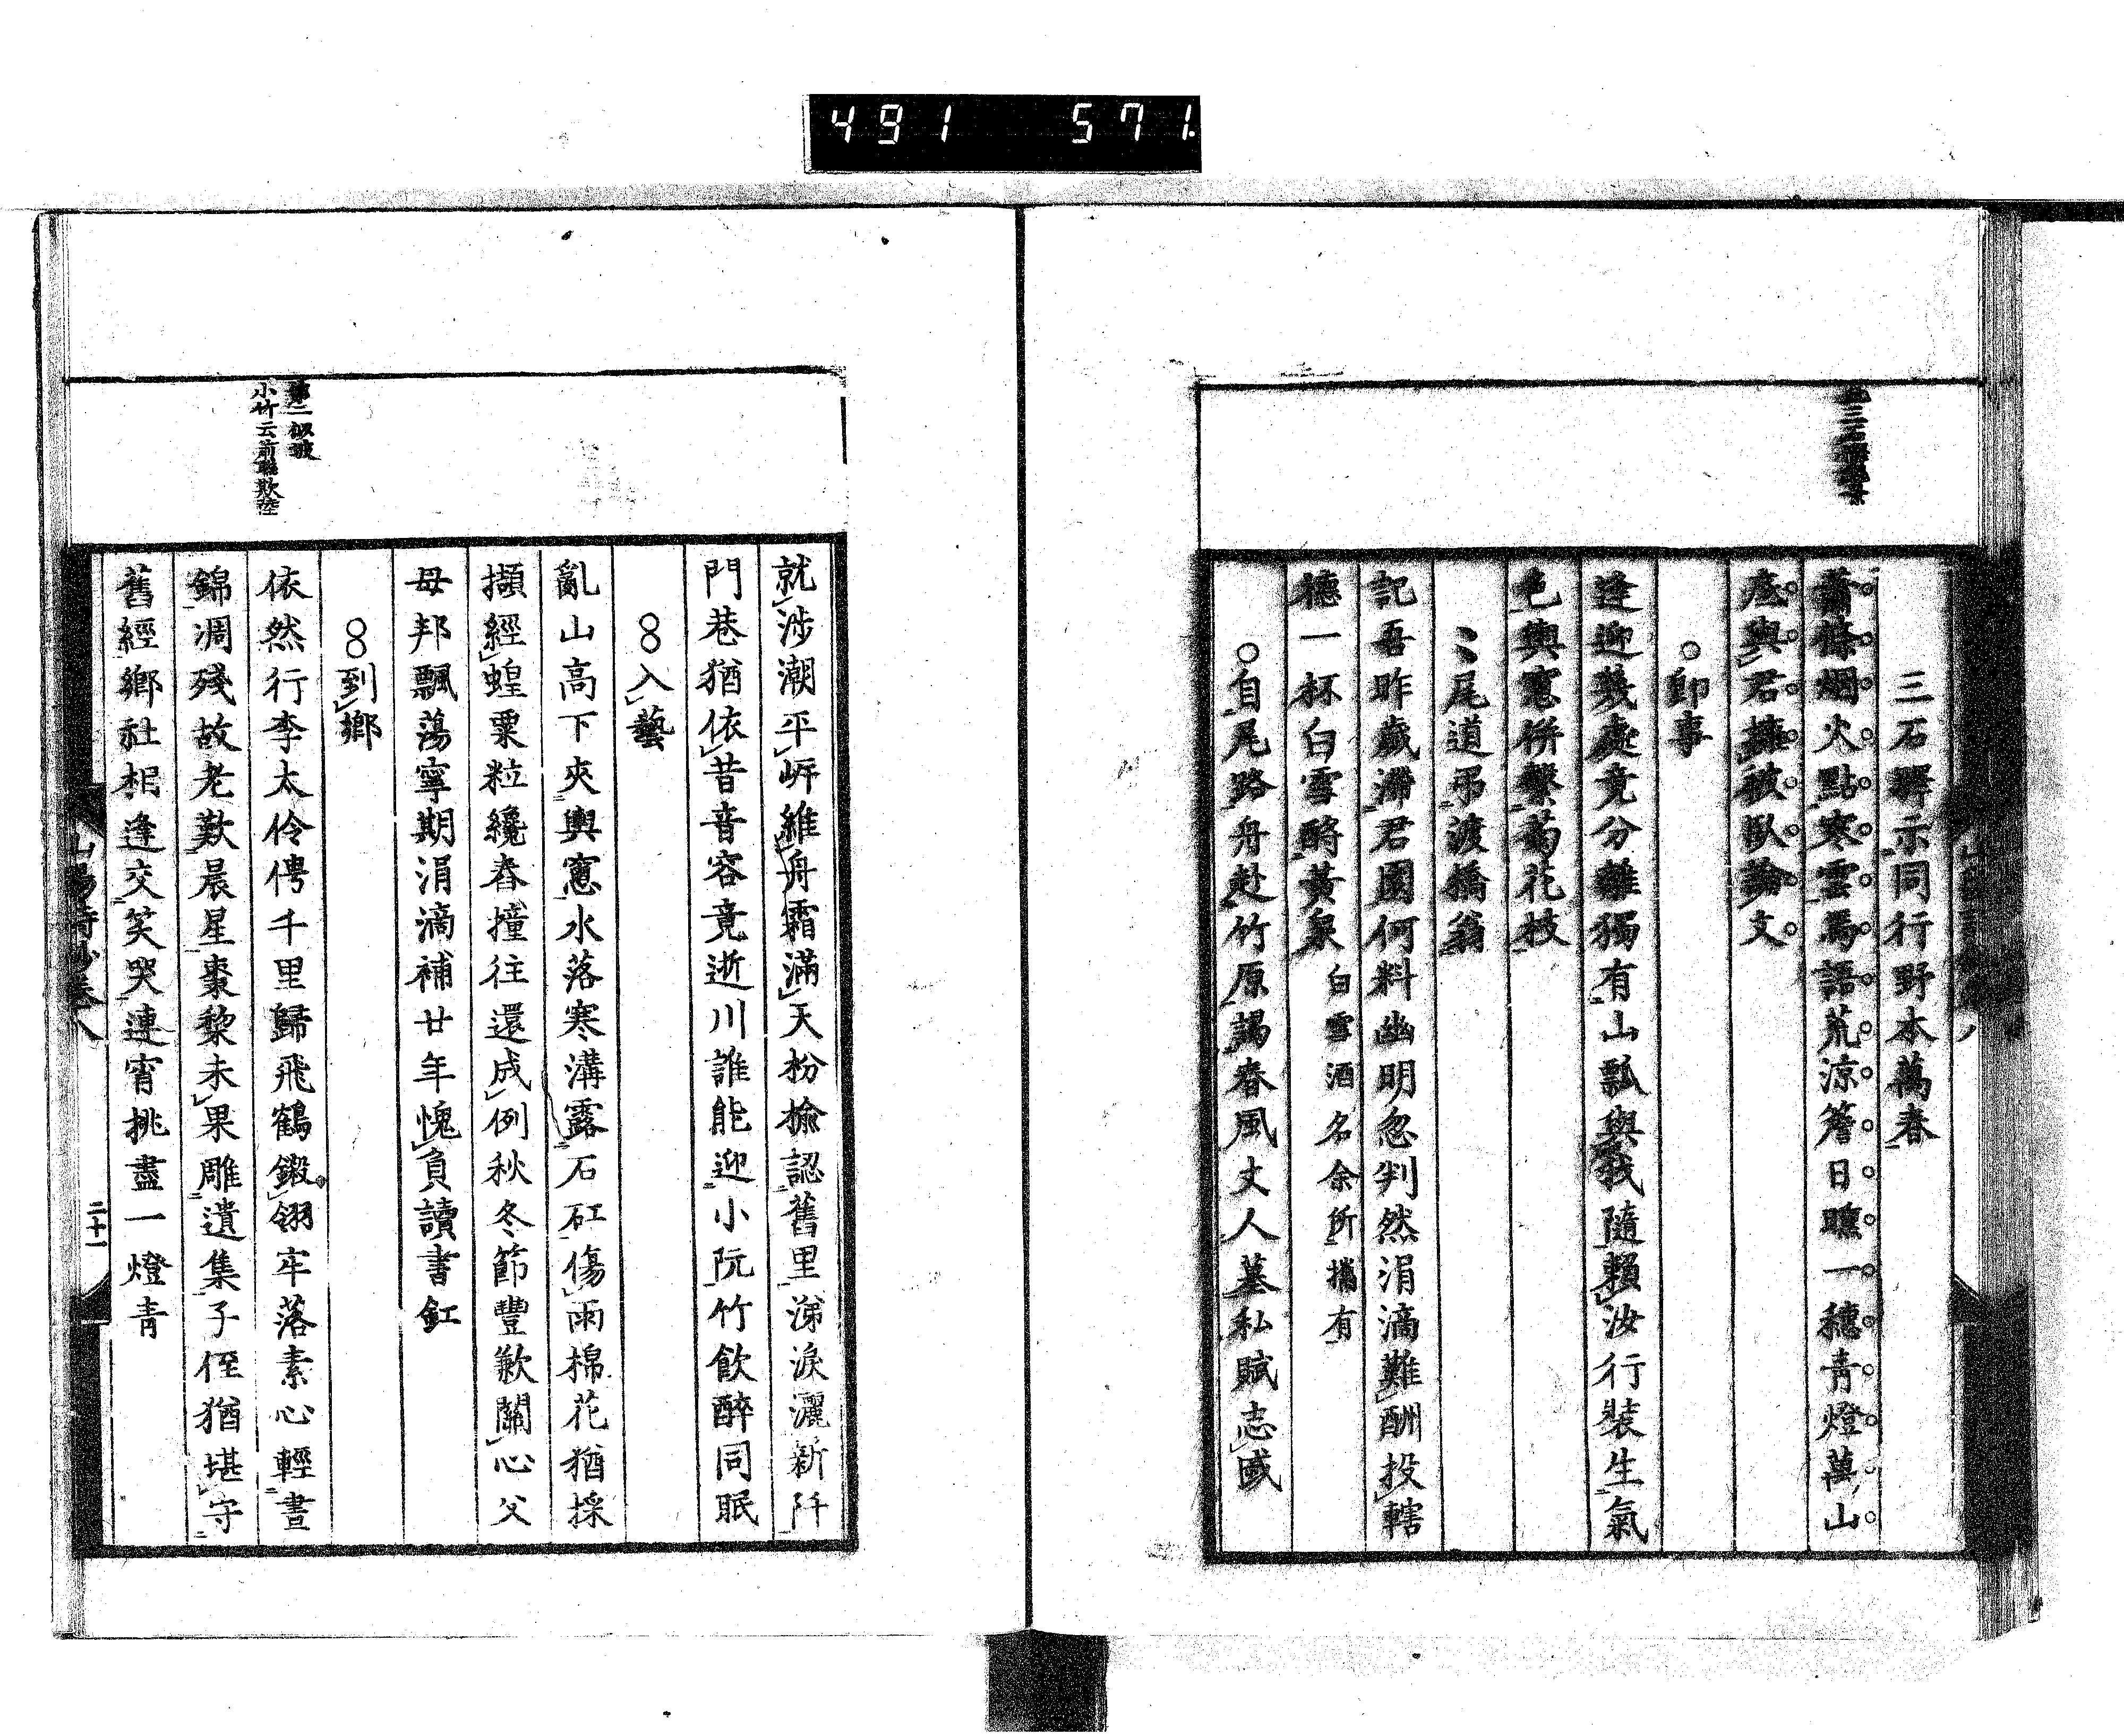 491 571
三石驛示同行野本萬春
蕭條烟火點寒雲馬語荒涼簷日曛一穗青燈萬山
底與君擁被臥論文
即事
逢迎幾處竟分離獨有山瓢與我隨賴汝行裝生氣
色輿窓併繫菊花枝
尾道弔渡橋翁
記吾昨歲滯君園何料幽明忽判然涓滴難酬投轄
德一杯白雪酹黃泉 白雪酒名余所攜有
自尾路舟赴竹原謁春風丈人墓私賦志感
第二似坡
小竹云前聯欺陸
就涉潮平岍維舟霜滿天枌揄認舊里涕淚灑新阡
門巷猶依昔音容竟逝川誰能迎小阮竹飲醉同眠
入藝
亂山高下夾輿窓水落寒溝露石矼傷雨棉花猶採
擷經蝗粟粒纔舂撞往還成例秋冬節豐歉關心父
母邦飄蕩寧期涓滴補廿年愧負讀書釭
到鄉
依然行李太伶俜千里歸飛鶴鎩翎牢落素心輕晝
錦凋殘故老歎晨星棗黎未果雕遺集子侄猶堪守
舊經鄉社相逢交笑哭連宵挑盡一燈青
山陽詩鈔卷八
二十一